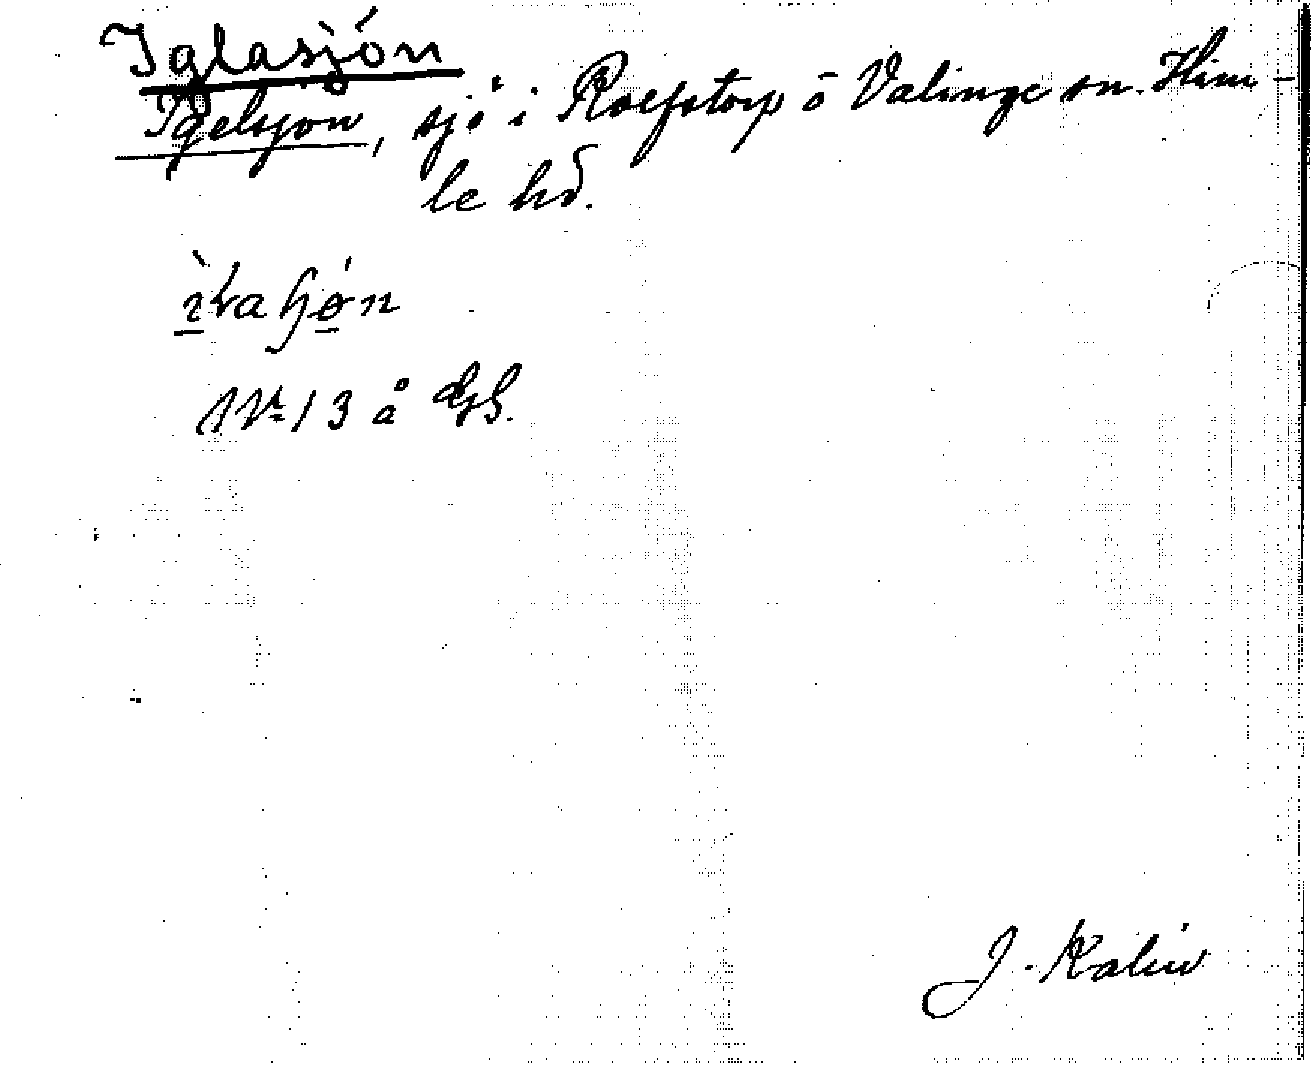 Iglasjön
Igelsjön, sjö i Rolfstorp o Valinge sn. Him-
le hd.
No 13 å GS.
J. Kalén